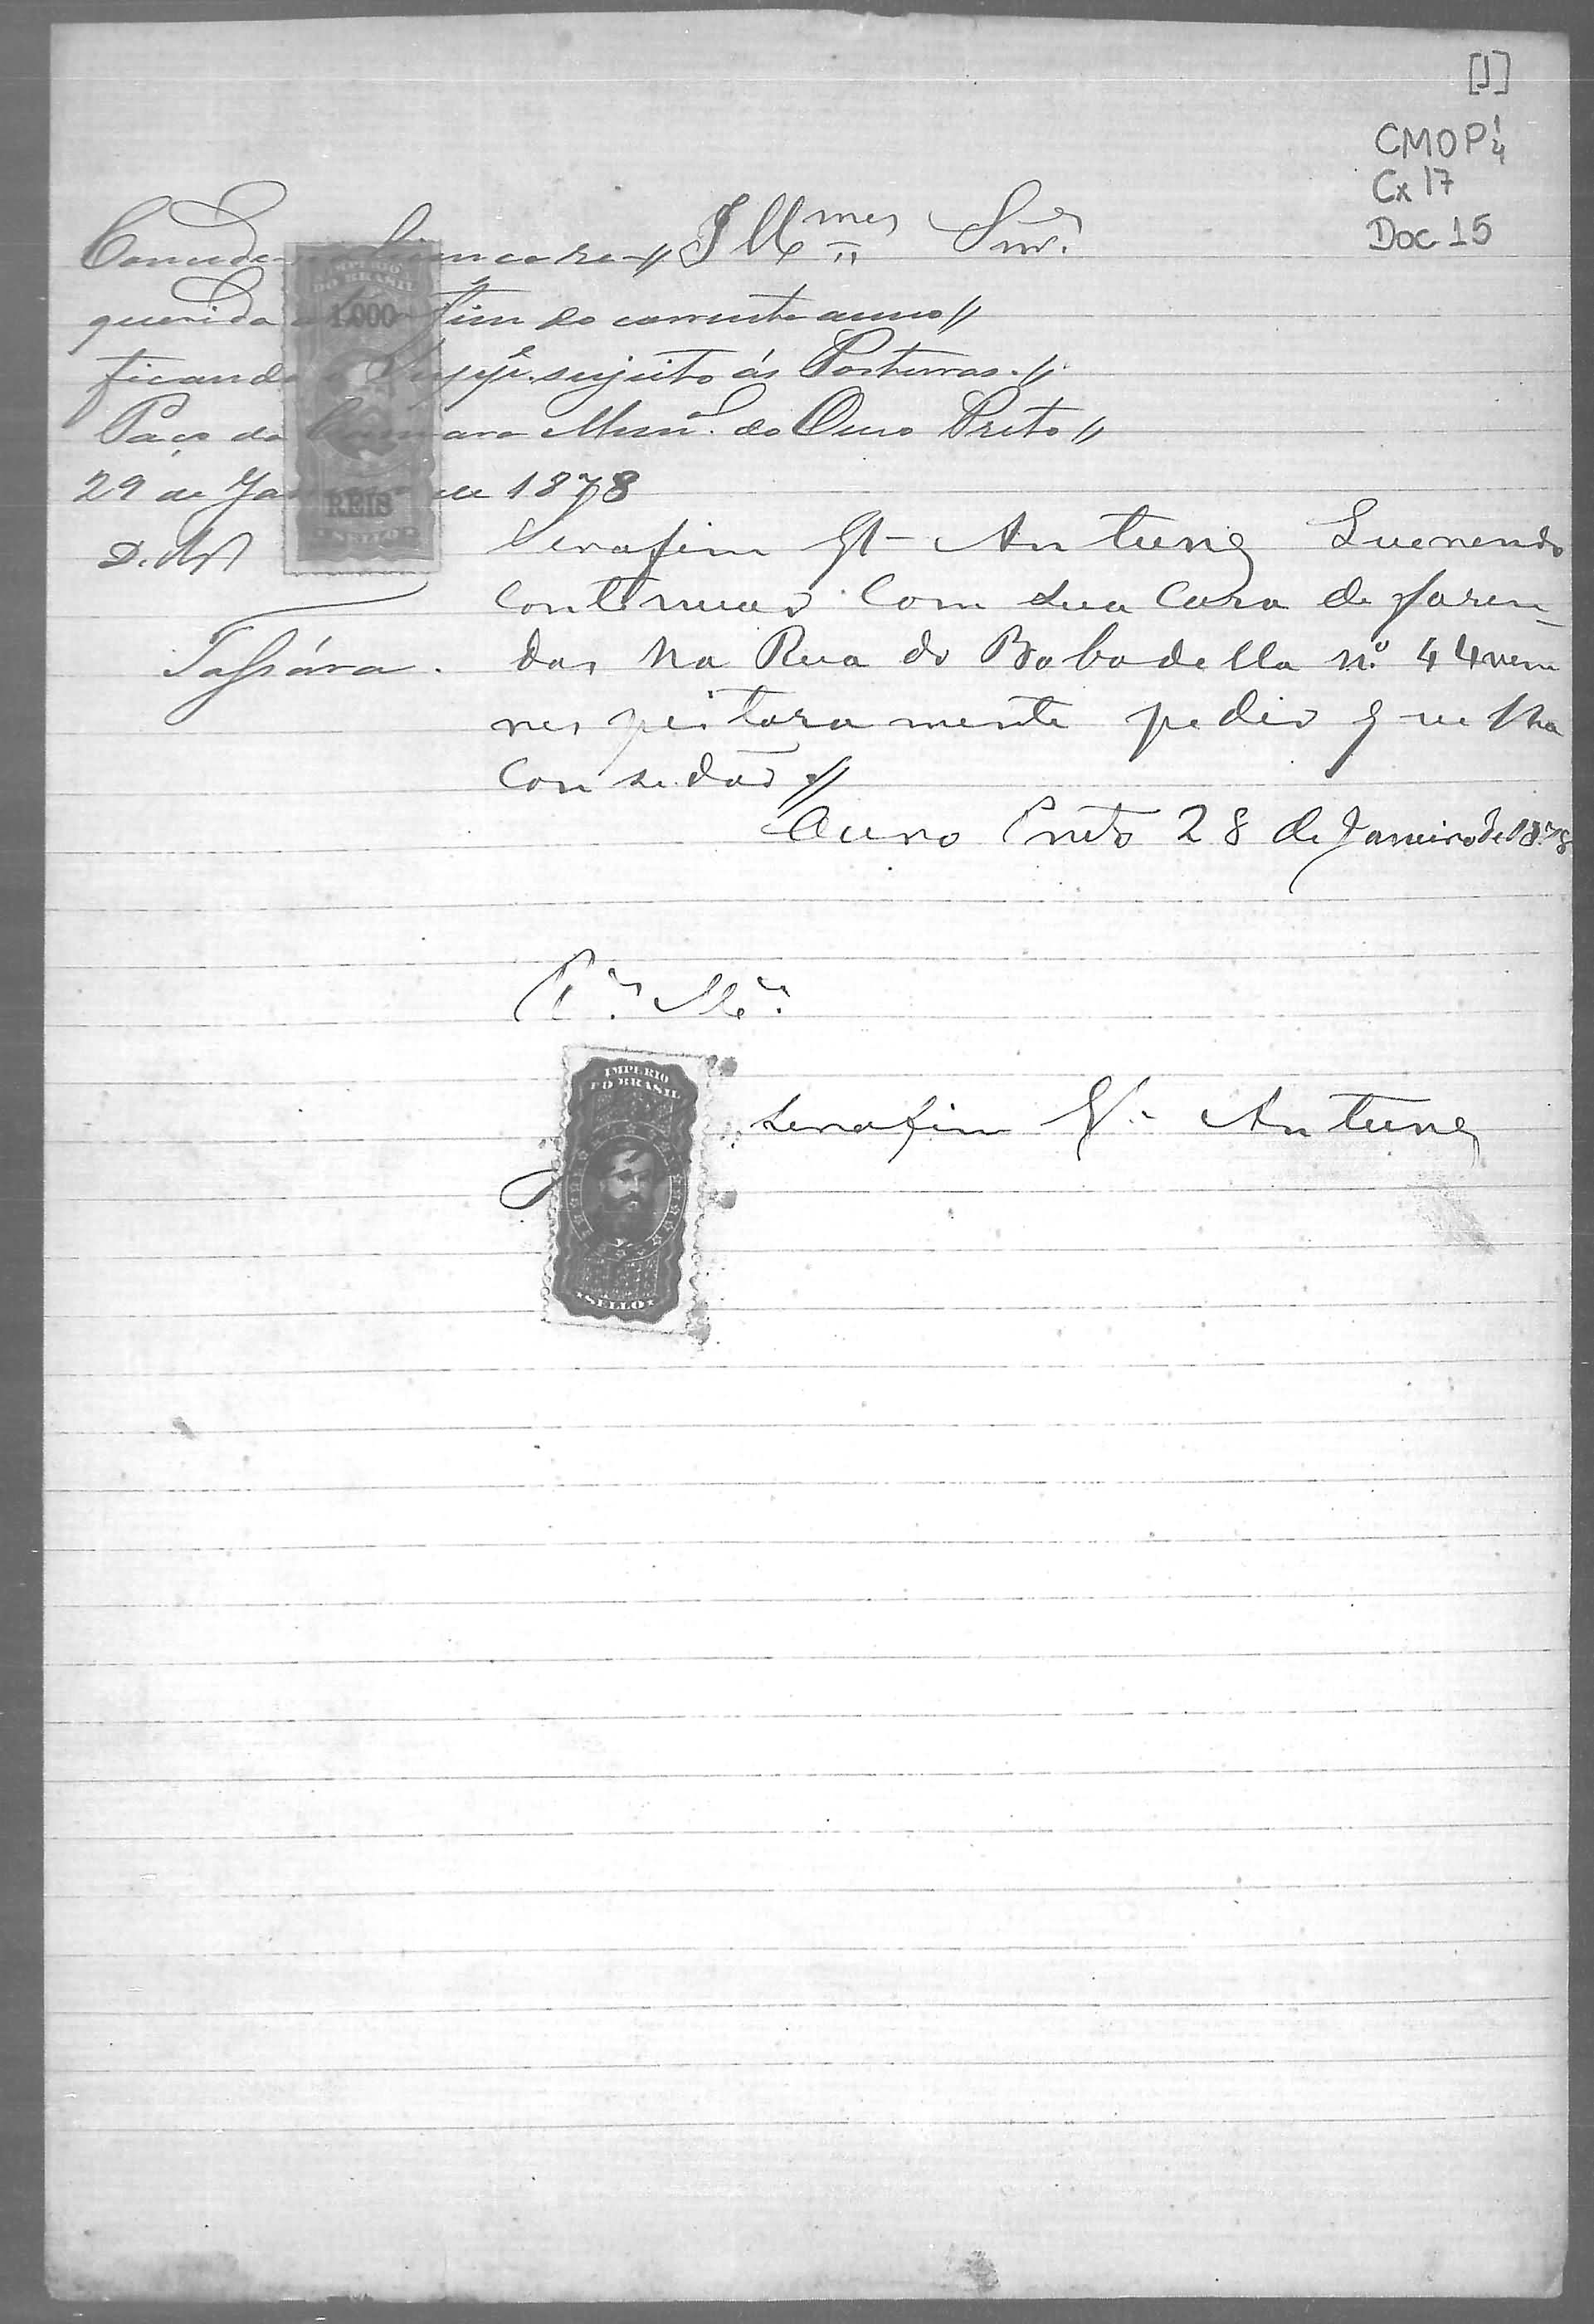 [1]
CMOP 1/4
Cx 17
Doc 15
Illmes Snrs.
Concede-se licença re //
querida fim do corrente anno //
ficando o Suppe. sujeito ás Posturas. //
Paço da Camara Mun. do Ouro Preto //
29 de Jan de 1878
D. M
Tassára.
IMPERIO
DO BRASIL
1.000
REIS
SELLO
Serafim Antunes Querendo
Continuar Com sua Casa de faren-
das na Rua do Bobadella nº 44 vem
respeitosamente pedir que lha
Consedão //
Ouro Preto 28 de Janeiro de 1878
P. Me.
IMPERIO
DO BRASIL
SELLO
Serafim Antunes